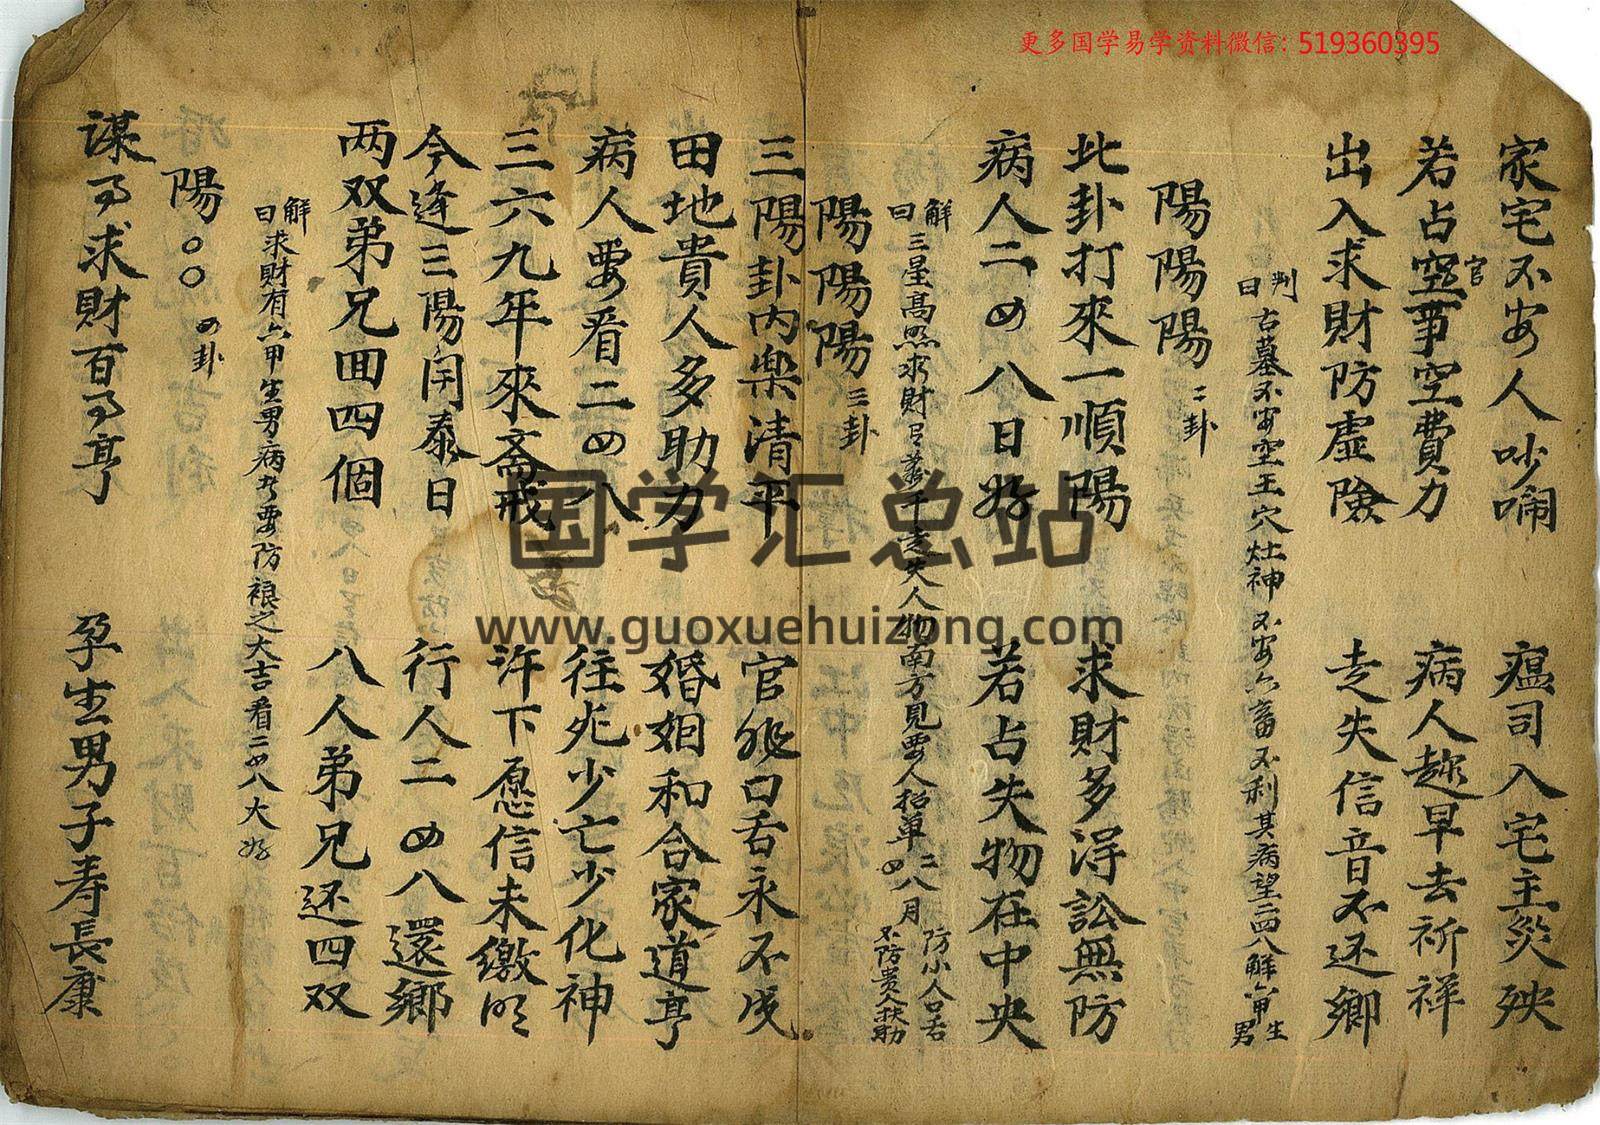 更多国学易学资料微信: 519360395
家宅不安人吵閙 瘟司入宅主災殃
若占空事空費力 病人趂早去祈祥
官
出入求財防虛險 走失信音不还鄉
判曰 古墓不安空王穴灶神不安六畜不利其病望二四八解六甲生男
陽陽陽 二卦
此卦打來一順陽 求財多淂訟無防
病人二四八日好 若占失物在中央
解曰 三星高照求財千走失人物南方見要人招单二四八月 防小人口舌 不防贵人扶助
陽陽陽 三卦
三陽卦内樂清平 官非口舌永不成
田地貴人多助力 婚姻和合家道亨
病人要看二四八 往死少亡少化神
三六九年來斋戒 許下愿信未繳
今逢三陽開泰日 行人二四八還鄉
两双弟兄四個 八人弟兄还四双
解曰 求財有六甲生男病者要防裉之大吉看二四八大好
陽○○ 四卦
谋事求財百事亨 孕生男子寿長康
国学汇总站
www.guoxuehuizong.com